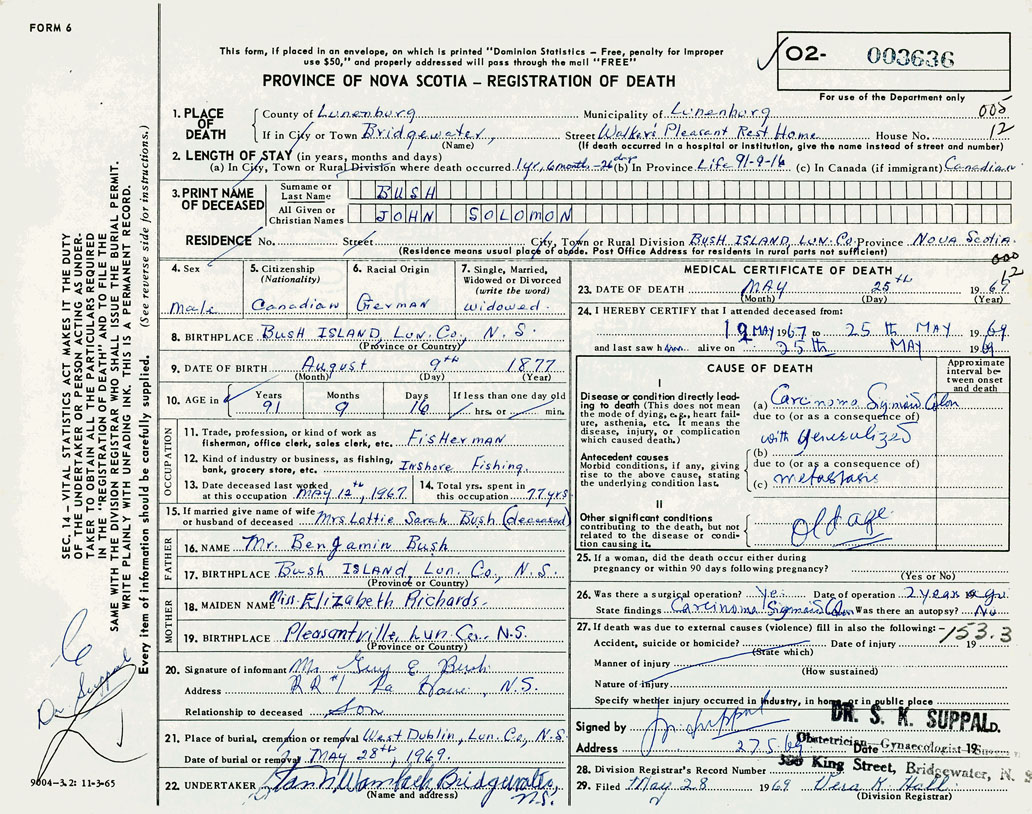 FORM 6
This form, if placed in an envelope, on which is printed "Dominion Statistics – Free, penalty for improper
use $50," and properly addressed will pass through the mail "FREE"
PROVINCE OF NOVA SCOTIA – REGISTRATION OF DEATH
02- 003636
For use of the Department only
005
12
1. PLACE OF DEATH
County of Lunenburg Municipality of Lunenburg
If in City or Town Bridgewater, Street Pleasant Rest Home House No.
(Name) (If death occurred in a hospital or institution, give the name instead of street and number)
2. LENGTH OF STAY (in years, months and days)
(a) In City, Town or Rural Division where death occurred 1yr, 6month-26days (b) In Province Life 91-9-16 (c) In Canada (if immigrant) Canadian
3. PRINT NAME OF DECEASED
Surname or Last Name BUSH
All Given or Christian Names JOHN SOLOMON
RESIDENCE No. Street City, Town or Rural Division BUSH ISLAND, LUN. CO. Province NOVA SCOTIA.
(Residence means usual place of abode. Post Office Address for residents in rural parts not sufficient)
000
12
4. Sex Male
5. Citizenship (Nationality) Canadian
6. Racial Origin German
7. Single, Married, Widowed or Divorced (write the word) widowed
8. BIRTHPLACE BUSH ISLAND, LUN. CO., N. S.
(Province or Country)
9. DATE OF BIRTH August 9th 1877
(Month) (Day) (Year)
10. AGE in Years 91 Months 9 Days 16 If less than one day old hrs. or min.
OCCUPATION
11. Trade, profession, or kind of work as
fisherman, office clerk, sales clerk, etc. FISHERMAN
12. Kind of industry or business, as fishing,
bank, grocery store, etc. Inshore Fishing.
13. Date deceased last worked
at this occupation MAY 12th, 1967.
14. Total yrs. spent in
this occupation 77 yrs
15. If married give name of wife
or husband of deceased Mrs Lottie Sarah Bush (deceased)
FATHER
16. NAME Mr. Benjamin Bush
17. BIRTHPLACE Bush ISLAND, Lun. Co., N. S.
(Province or Country)
MOTHER
18. MAIDEN NAME Miss Elizabeth Richards.
19. BIRTHPLACE Pleasantville, Lun. Co., N.S.
(Province or Country)
20. Signature of informant Mr. Guy E. Bush
Address RR#1 La Have, N.S.
Relationship to deceased Son
21. Place of burial, cremation or removal West Dublin, Lun. Co., N.S.
Date of burial or removal MAY 28th, 1969.
22. UNDERTAKER Bridgewater, N.S.
(Name and address)
MEDICAL CERTIFICATE OF DEATH
23. DATE OF DEATH MAY 25th 19
(Month) (Day) (Year)
24. I HEREBY CERTIFY that I attended deceased from:
MAY 1967 to 25th MAY 1969
and last saw h alive on 25th MAY 1969
CAUSE OF DEATH
Approximate interval between onset and death
I
Disease or condition directly leading to death (This does not mean the mode of dying, e.g., heart failure, asthenia, etc. It means the disease, injury, or complication which caused death.)
(a) Carcinoma Sigmoid Colon
due to (or as a consequence of)
with generalized
Antecedent causes
Morbid conditions, if any, giving rise to the above cause, stating the underlying condition last.
(b)
due to (or as a consequence of)
(c) metastasis
II
Other significant conditions
contributing to the death, but not related to the disease or condition causing it.
Old age
25. If a woman, did the death occur either during
pregnancy or within 90 days following pregnancy?
(Yes or No)
26. Was there a surgical operation? Yes Date of operation 2 years ago
State findings Carcinoma Sigmoid Colon Was there an autopsy? No
27. If death was due to external causes (violence) fill in also the following:
153.3
Accident, suicide or homicide? Date of injury 19
(State which)
Manner of injury
(How sustained)
Nature of injury
Specify whether injury occurred in industry, in home or in public place
DR. S. K. SUPPAL.
Signed by
Address 27.5.69 Date 19
Obstetrician, Gynaecologist
King Street, Bridgewater, N. S.
28. Division Registrar's Record Number
29. Filed May 28 1969 Vera K. Hall
(Division Registrar)
SEC. 14 – VITAL STATISTICS ACT MAKES IT THE DUTY
OF THE UNDERTAKER OR PERSON ACTING AS UNDER-
TAKER TO OBTAIN ALL THE PARTICULARS REQUIRED
IN THE "REGISTRATION OF DEATH" AND TO FILE THE
SAME WITH THE DIVISION REGISTRAR WHO SHALL ISSUE THE BURIAL PERMIT.
WRITE PLAINLY WITH UNFADING INK. THIS IS A PERMANENT RECORD.
Every item of information should be carefully supplied. (See reverse side for instructions.)
Dr Suppal
9004-3.2: 11-3-65